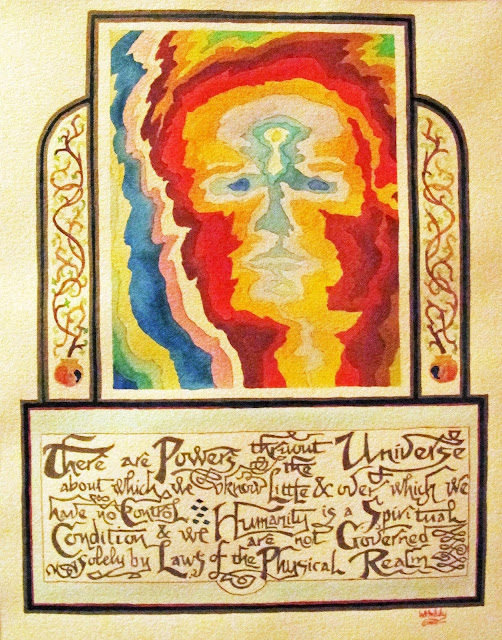 There are Powers thruout the Universe
about which we know little & over which we
have no Control. Humanity is a Spiritual
Condition & we are not Governed
solely by Laws of the Physical Realm